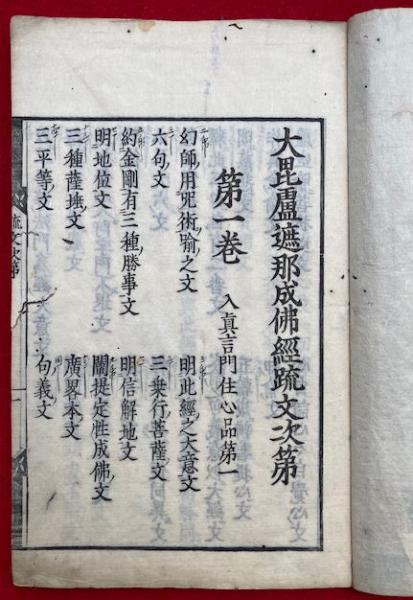 大毘盧遮那成佛經疏文次第
第一卷 入真言門住心品第一
幻師用咒術喻之文 明此經之大意文
六句文 三乗行菩薩文
約金剛有三種勝事文 明信解地文
明地位文 闡提定性成佛文
三種薩埵文 廣畧本文
三平等文 句義文
疏文次第